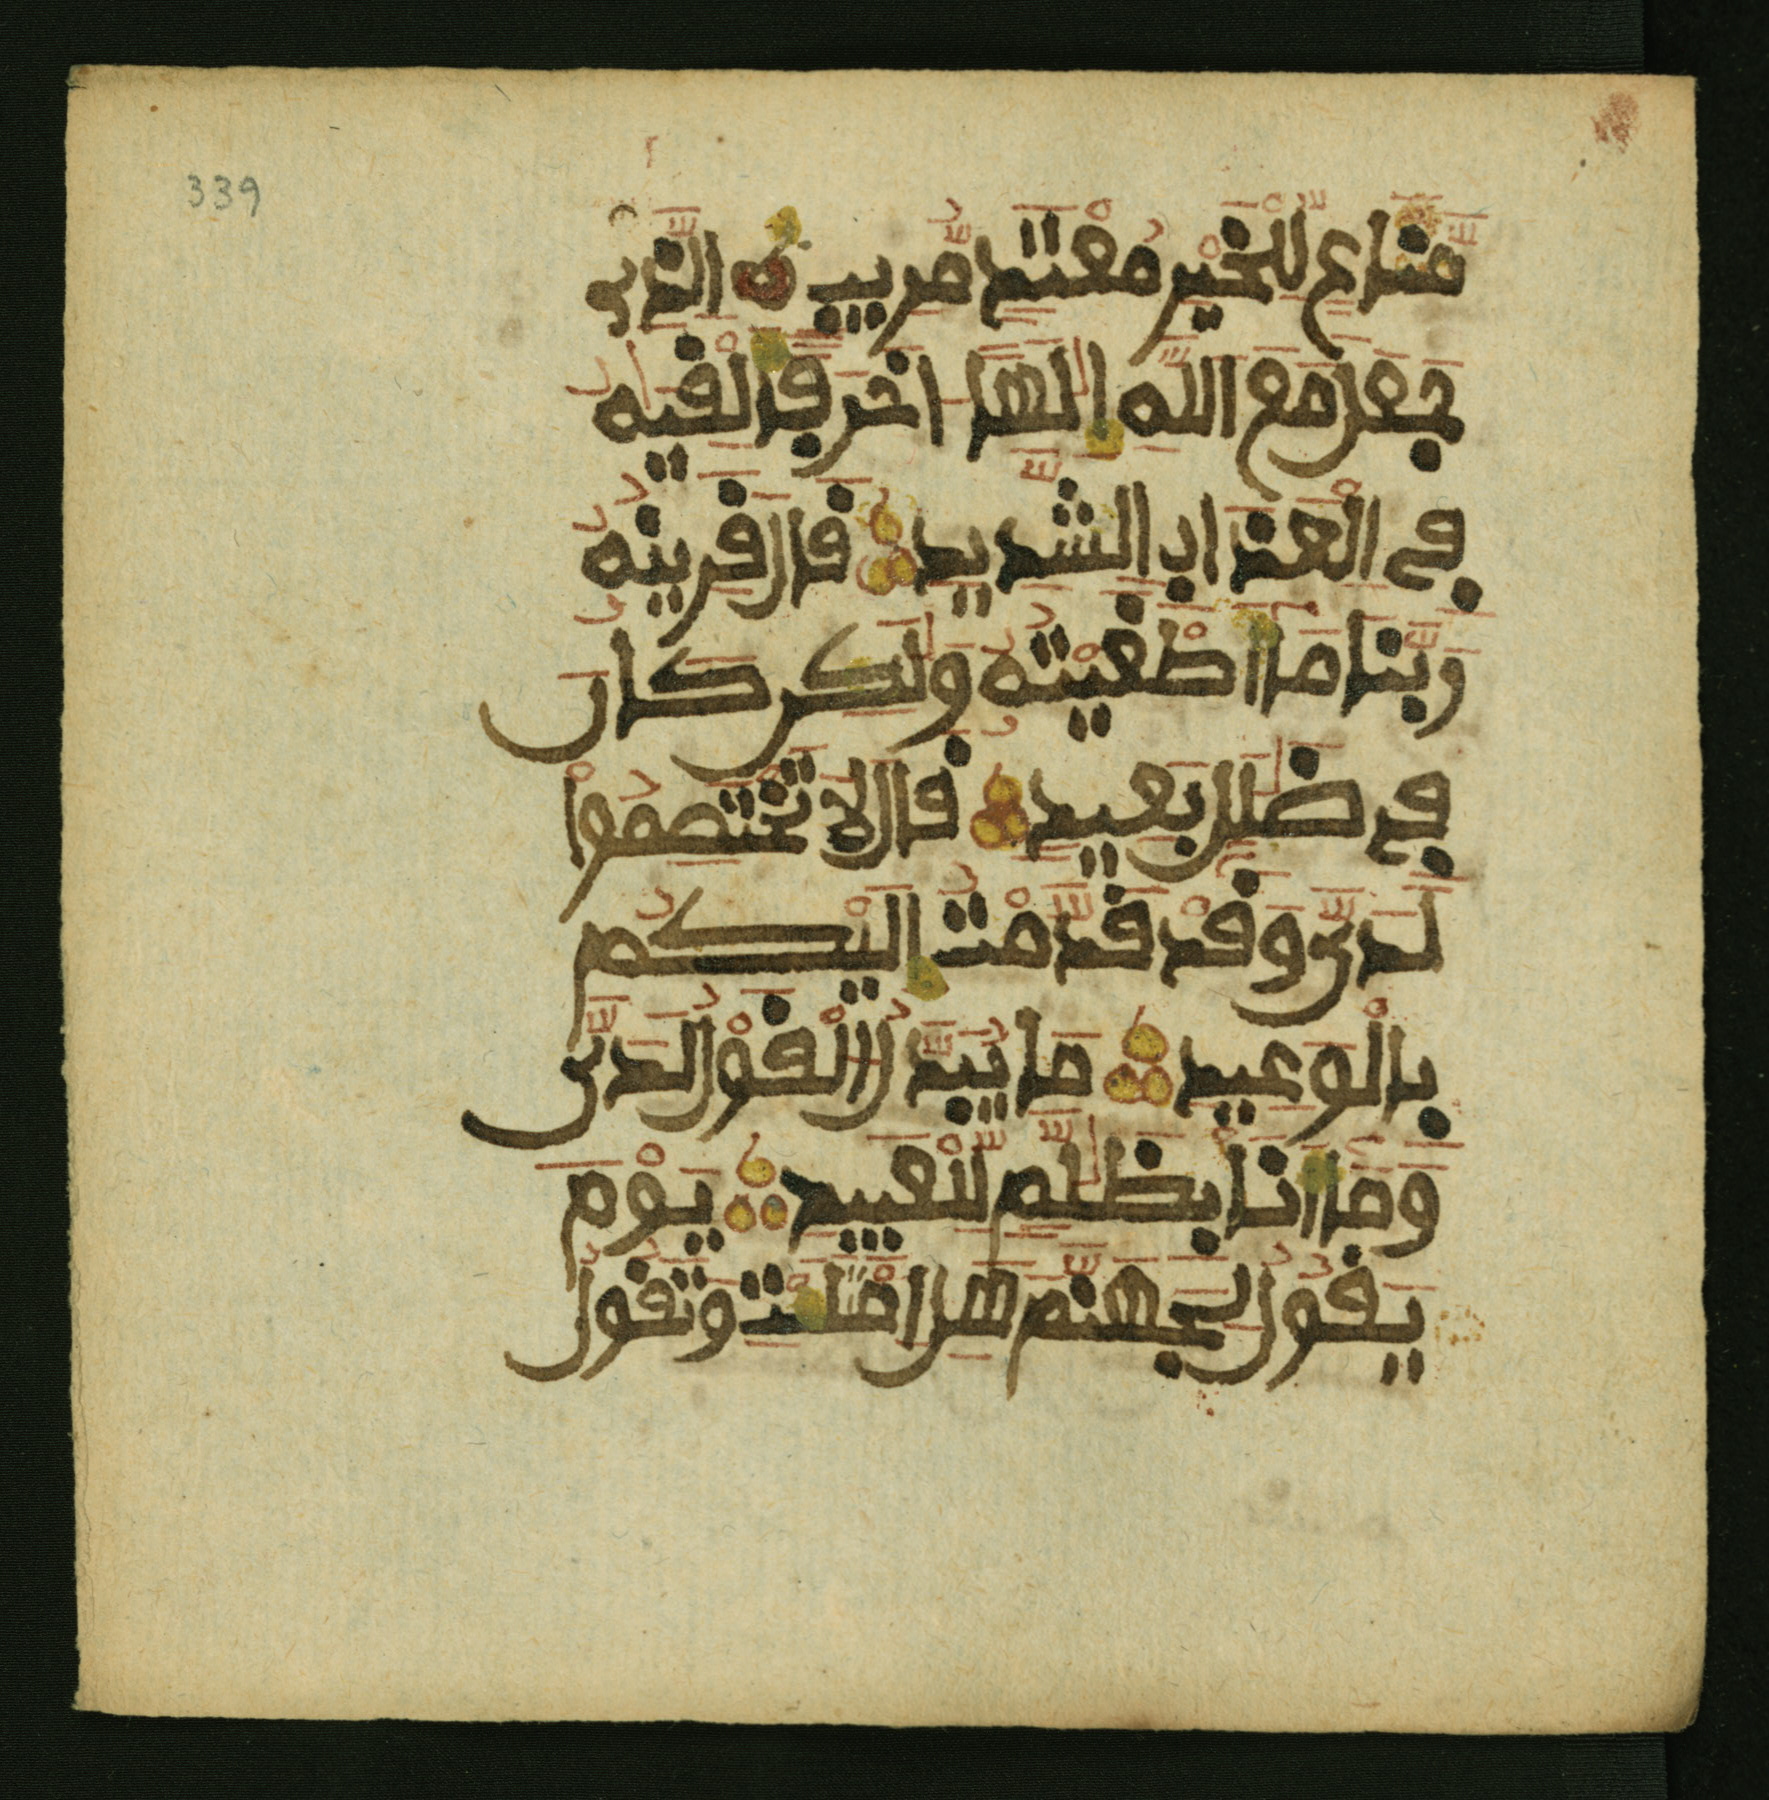 339
مَّنَّاعٍ لِّلْخَيْرِ مُعْتَدٍ مُّرِيبٍ الَّذِى
جَعَلَ مَعَ اللَّهِ إِلَٰهًا ءَاخَرَ فَأَلْقِيَٰهُ
فِي الْعَذَابِ الشَّدِيدِ قَالَ قَرِينُهُ
رَبَّنَا مَا أَطْغَيْتُهُ وَلَٰكِن كَانَ
فِي ضَلَٰلٍ بَعِيدٍ قَالَ لَا تَخْتَصِمُواْ
لَدَىَّ وَقَدْ قَدَّمْتُ إِلَيْكُم
بِالْوَعِيدِ مَا يُبَدَّلُ الْقَوْلُ لَدَىَّ
وَمَا أَنَا بِظَلَّٰمٍ لِّلْعَبِيدِ يَوْمَ
يَقُولُ لِجَهَنَّمَ هَلِ امْتَلَأْتِ وَتَقُولُ